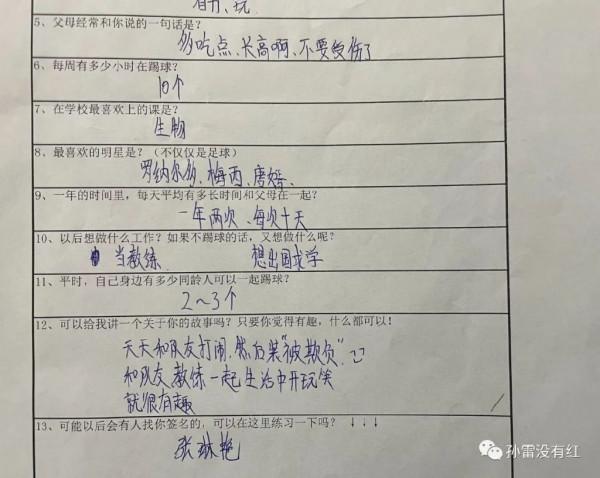 看书、玩
5、父母经常和你说的一句话是？
多吃点、长高啊、不要受伤了
6、每周有多少小时在踢球？
10个
7、在学校最喜欢上的课是？
生物
8、最喜欢的明星是？（不仅仅是足球）
罗纳尔多、梅西、唐嫣、
9、一年的时间里，每天平均有多长时间和父母在一起？
一年两次、每次十天
10、以后想做什么工作？如果不踢球的话，又想做什么呢？
当教练 想出国求学
11、平时，自己身边有多少同龄人可以一起踢球？
2～3个
12、可以给我讲一个关于你的故事吗？只要你觉得有趣，什么都可以！
天天和队友打闹、然后装“被欺负”
和队友教练一起生活中开玩笑
就很有趣
13、可能以后会有人找你签名的，可以在这里练习一下吗？ ↓↓↓
张琳艳
孙雷没有红